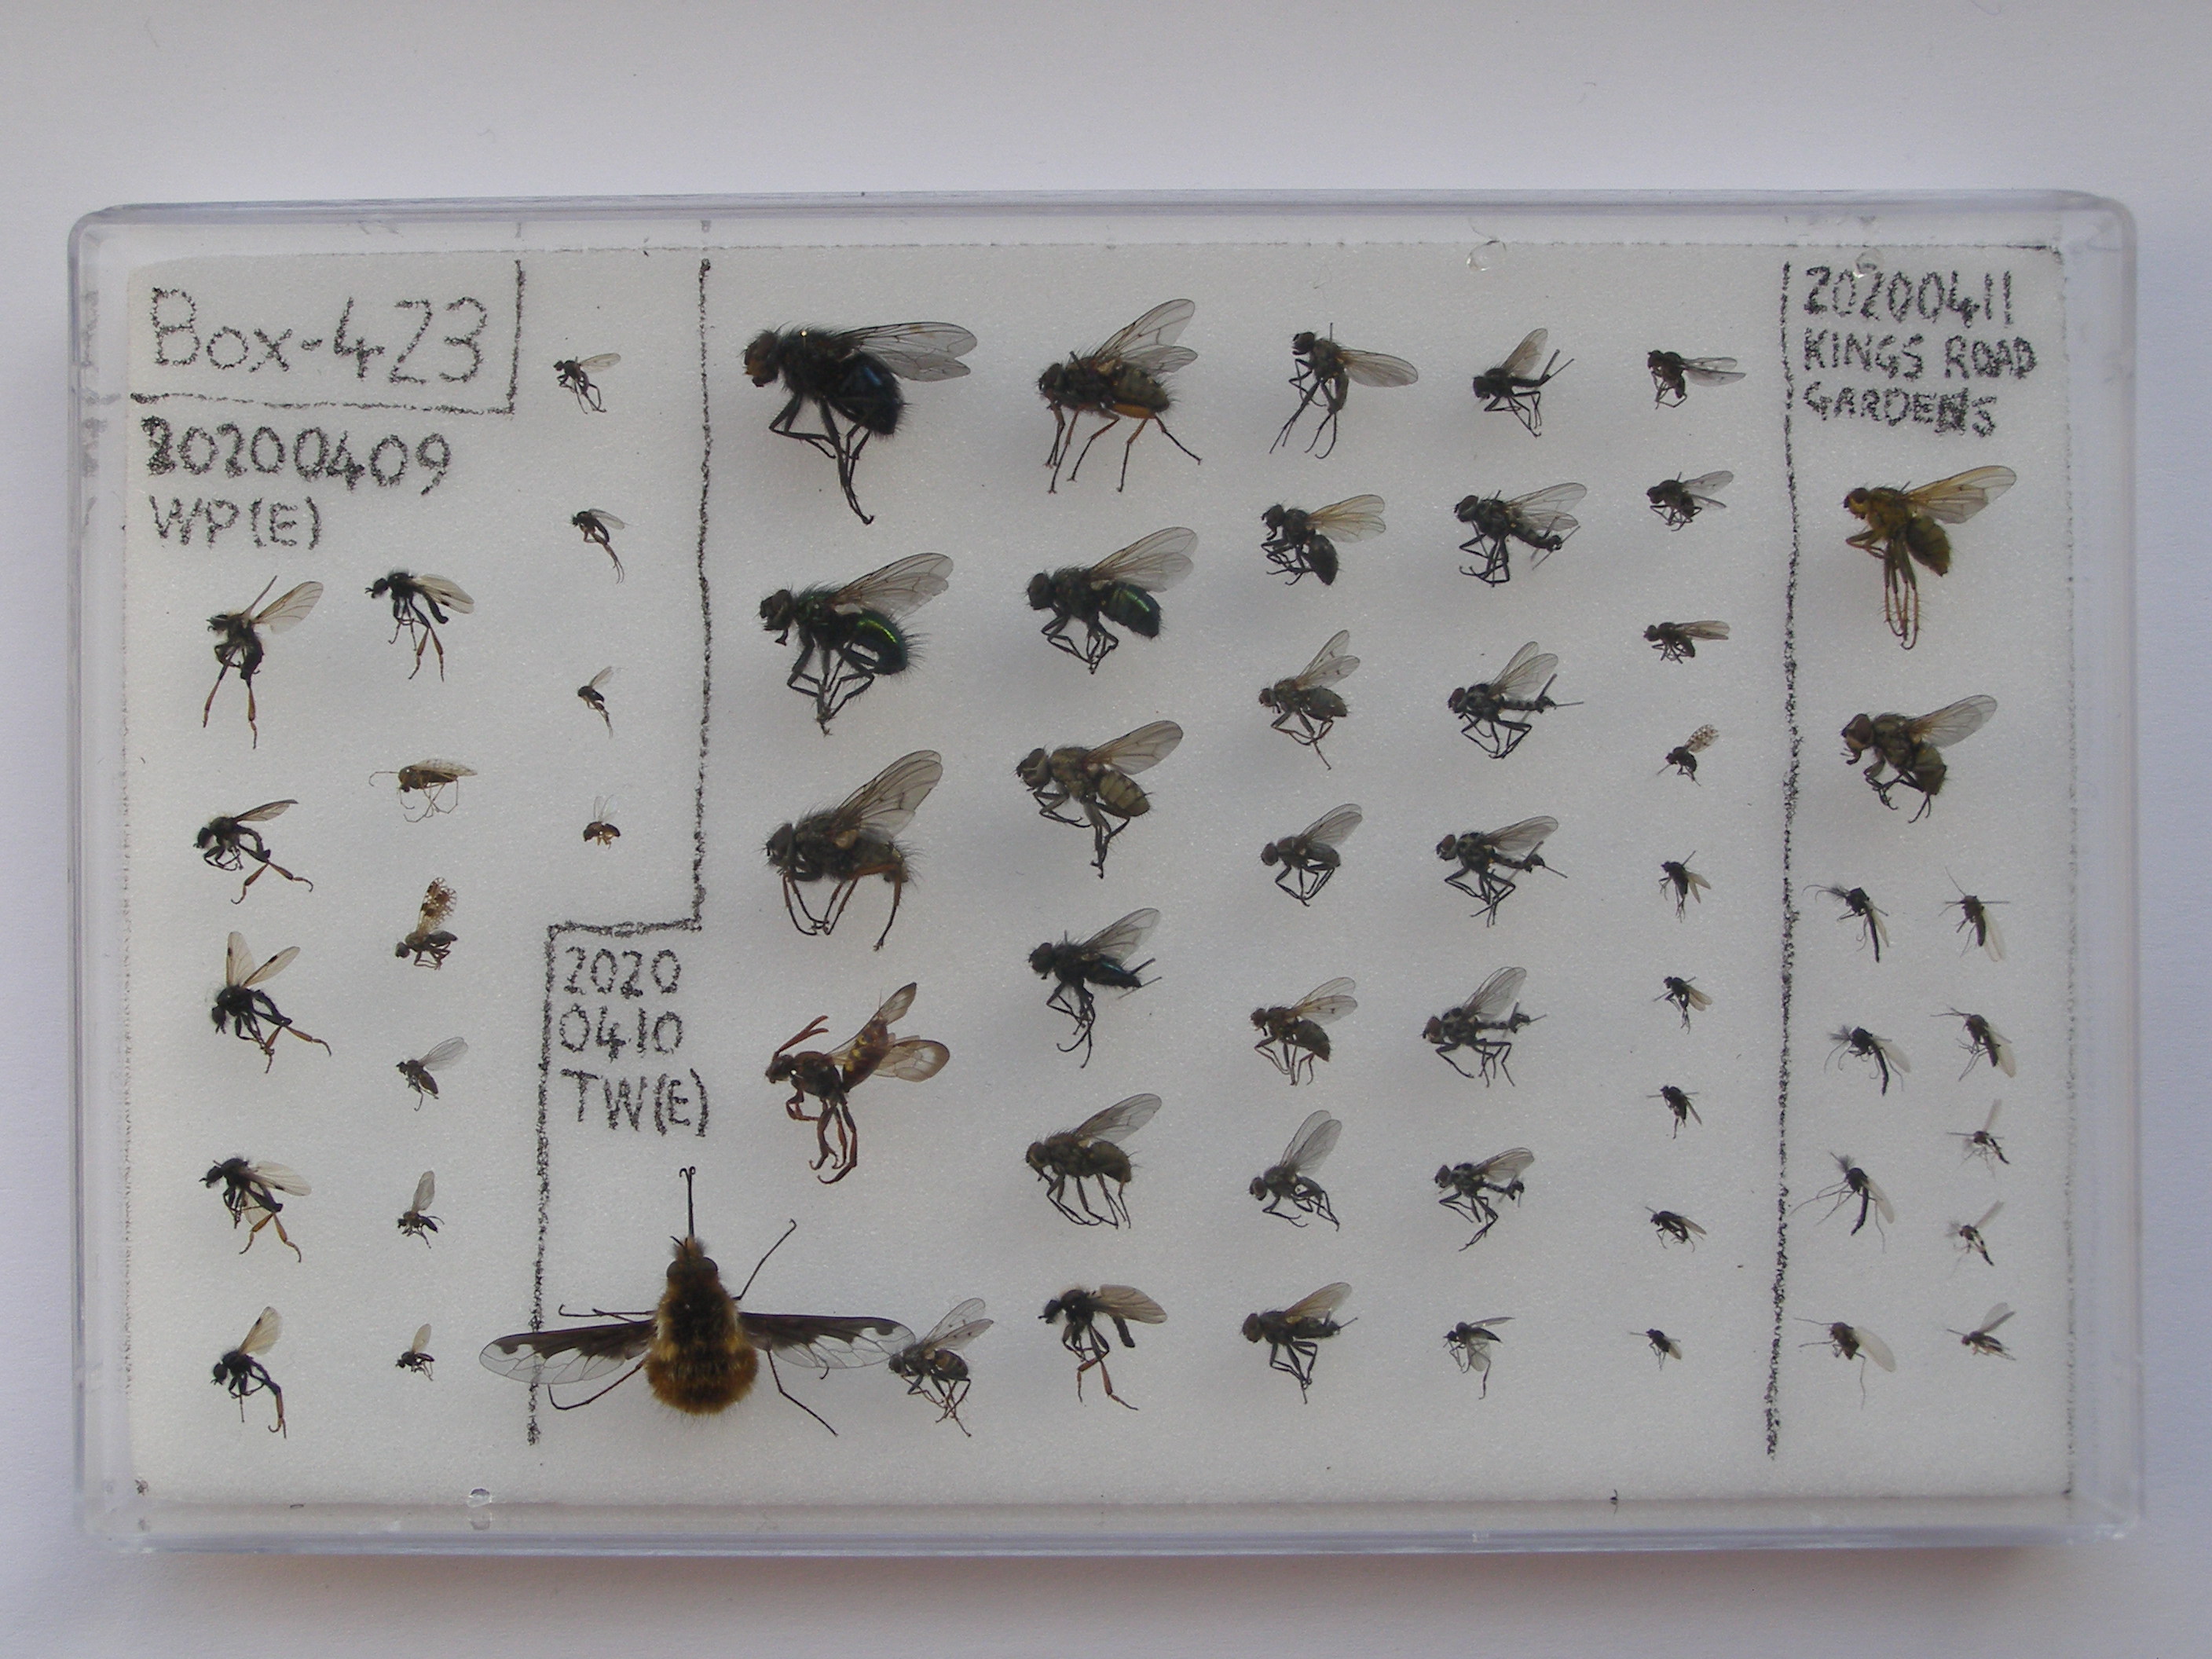 Box-423
20200409
WP(E)
2020
0410
TW(E)
20200411
KINGS ROAD
GARDENS